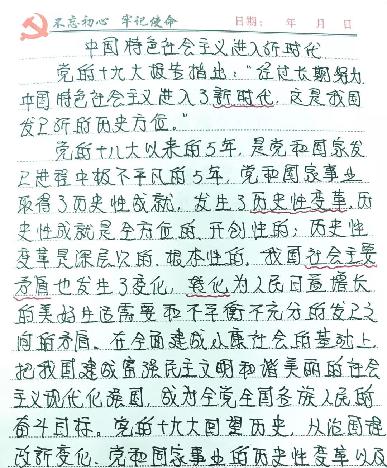 不忘初心 牢记使命 日期： 年 月 日
中国特色社会主义进入新时代
党的十九大报告指出："经过长期努力
中国特色社会主义进入了新时代，这是我国
发展新的历史方位。"
党的十八大以来的5年，是党和国家发
展进程中极不平凡的5年，党和国家事业
取得了历史性成就，发生了历史性变革，历
史性成就是全方位的、开创性的；历史性
变革是深层次的、根本性的。我国社会主要
矛盾也发生了变化，转化为人民日益增长
的美好生活需要和不平衡不充分的发展之
间的矛盾。在全面建成小康社会的基础上，
把我国建成富强民主文明和谐美丽的社会
主义现代化强国，成为全党全国各族人民的
奋斗目标。党的十九大回望历史，从治国理
政新变化、党和国家事业的历史性变革以及